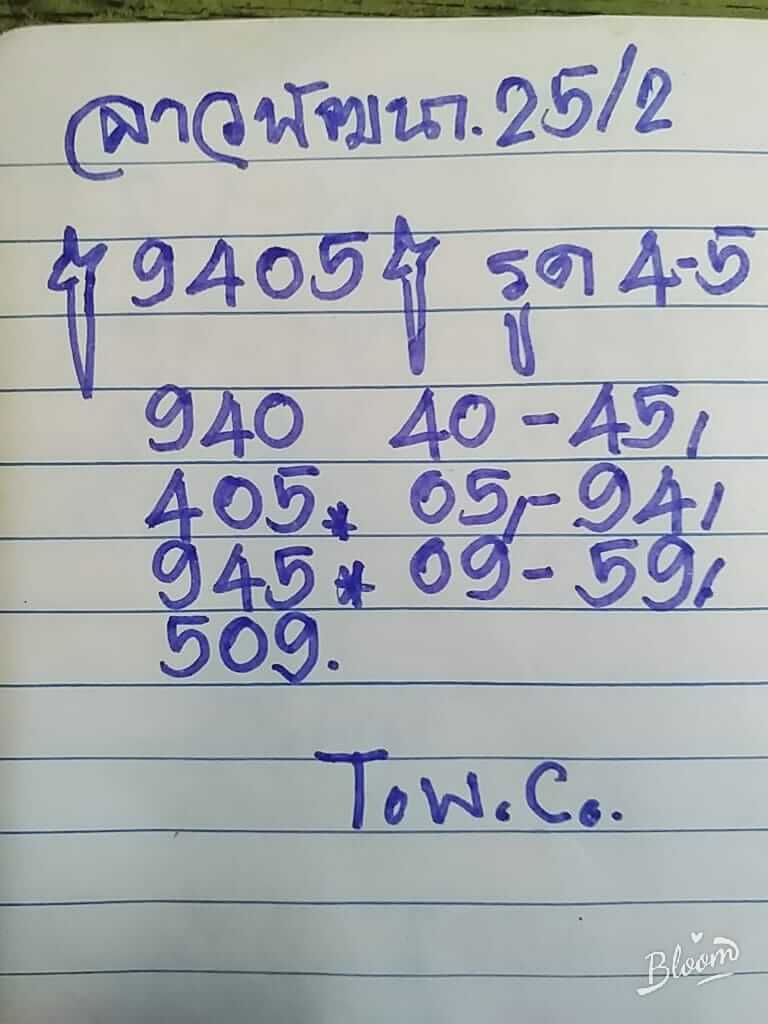 ลาวพัฒนา. 25/2
9405 รูด 4-5
940 40-45,
405* 05,-94,
945* 09-59,
509.
Tow.Co.
Bloom